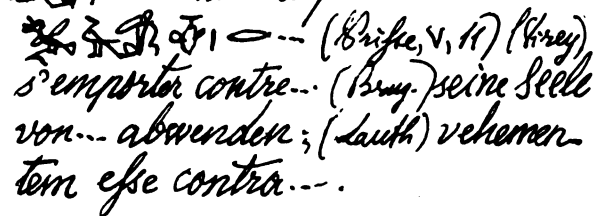 (Prisse, V, 11) (Virey)
s'emporter contre... (Brug.) seine Seele
von... abwenden; (Lauth) vehemen-
tem esse contra....